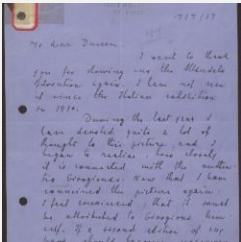 17/7/37
My dear Duveen,
I want to thank
you for showing me the Allendale
Adoration again. I have not seen
it since the Italian exhibition
in 1930.
During the last year I
have devoted quite a lot of
thought to this picture, and I
began to realise how closely
it is connected with the
Giorgiones. Now that I have
examined the picture again
I feel convinced, that it must
be attributed to Giorgione him-
self. If a second edition of my